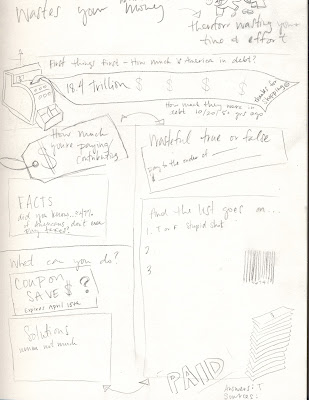 wastes your money
therefore wasting your
time & effort
First things first - How much is America in debt?
18.4 trillion $ $ $ $
thanks for
shopping!
How much they were in
debt 10/20/5? yrs ago
How much
you're paying/
contributing
$
Wasteful true or false
pay to the order of
$
FACTS
did you know...? 47%
of Americans don't even
pay taxes?
And the list goes on...
1. T or F Stupid shit
2
3
What can you do?
COUPON
SAVE $ ?
expires April 15th
Solutions
umm not much
PAID
Answers: T
Sources: